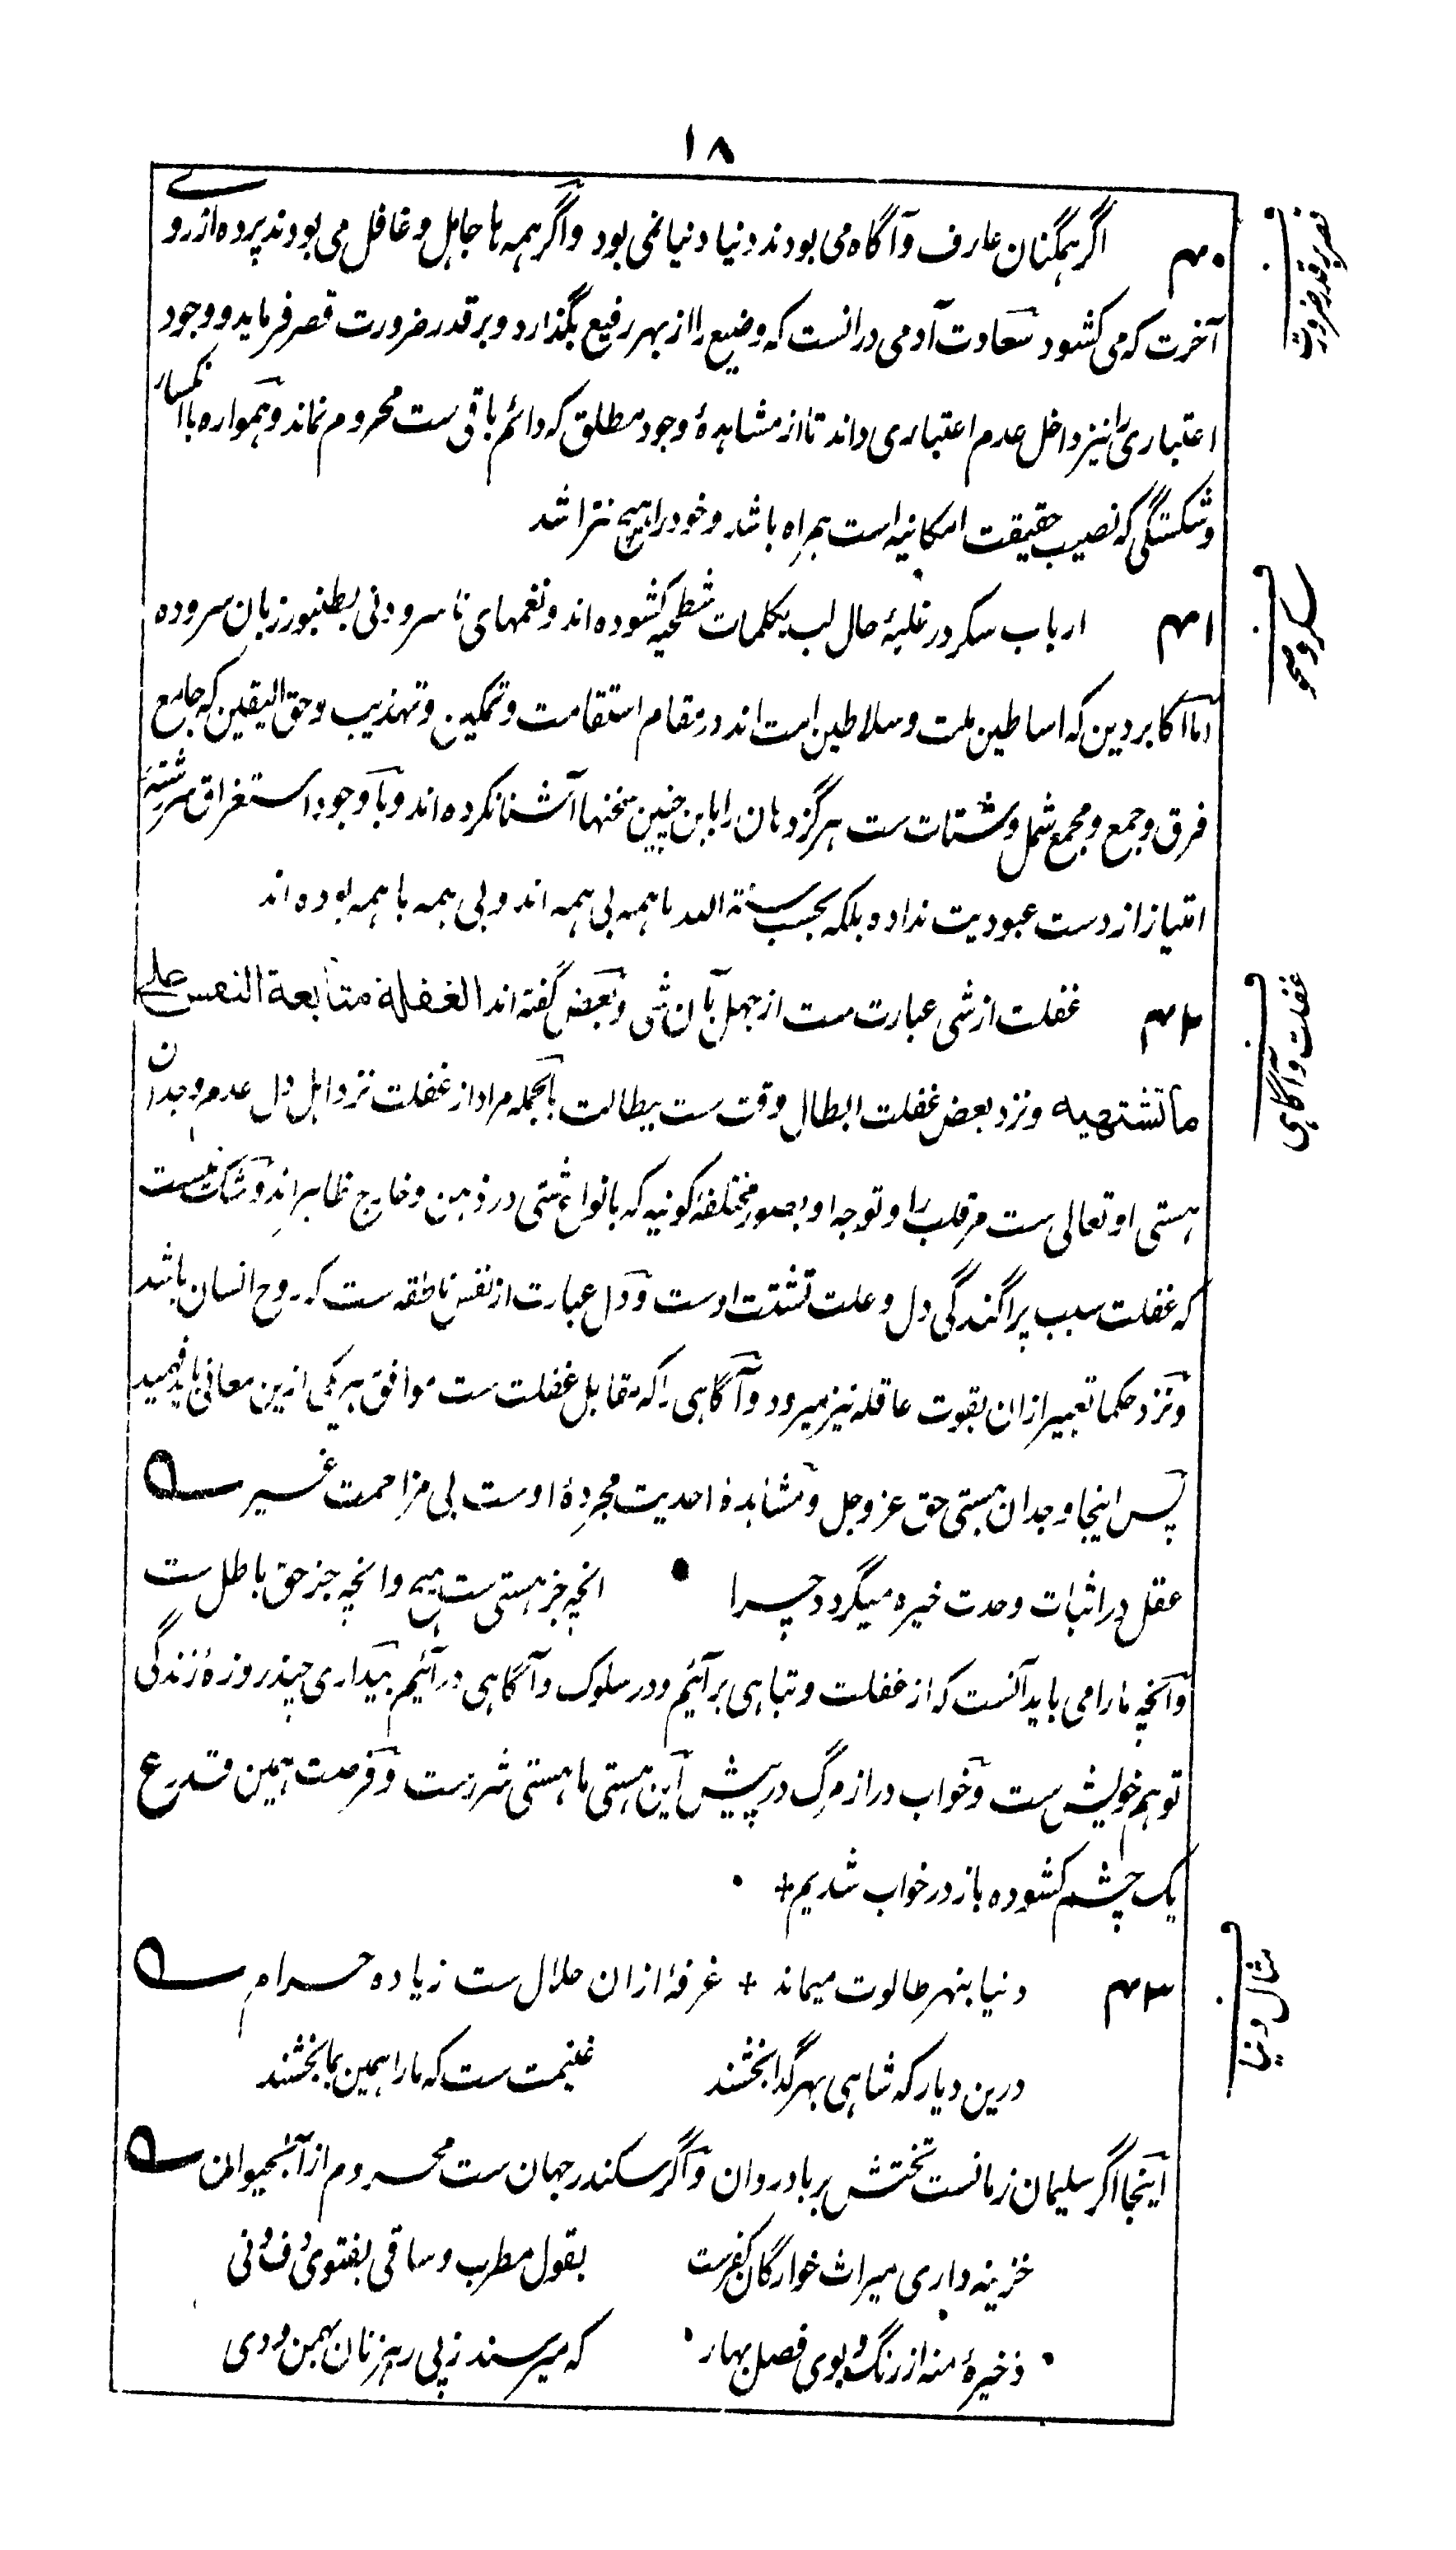 ۱۸
۴۰ اگر همگنان عارف و آگاه می بودند دنیا دنیا نمی بود و اگر همه ها جاهل و غافل می بودند پرده از روے
آخرت که می کشود سعادت آدمی در انست که وضیع را از بهر رفیع بگذارد و بر قدر ضرورت قصر فرماید و وجود
اعتباری را نیز داخل عدم اعتباری داند تا از مشاهدهٔ وجود مطلق که دائم باقی ست محروم نماند و همواره با انکسار
و شکستگی که نصیب حقیقت امکانیه است همراه باشد و خود را هیچ نتراشد
قصر بر قدر ضرورت
۴۱ ارباب سکر در غلبهٔ حال لب بکلمات شطحیه کشوده اند و نغمهای ناسرودنی بطنبور زبان سروده
اما اکابر دین که اساطین ملت و سلاطین امت اند در مقام استقامت و تمکین و تهذیب و حق الیقین که جامع
فرق و جمع و مجمع شمل و شتات ست هرگز دهان را باین چنین سخنها آشنا نکرده اند و با وجود استغراق سررشتهٔ
امتیاز از دست عبودیت نداده بلکه بحسب سنة الله با همه بی همه اند و بی همه با همه بوده اند
سکر و صحو
۴۲ غفلت از شی عبارت ست از جهل بآن شی و بعض گفته اند الغفلة متابعة النفس علی
ما تشتهیه و نزد بعض غفلت ابطال وقت ست ببطالت بالجمله مراد از غفلت نزد اهل دل عدم وجدان
هستی او تعالی ست مر قلب را و توجه او بصور مختلفهٔ کونیه که بانواع شتی در ذهن و خارج ظاهر اند و شک نیست
که غفلت سبب پراگندگی دل و علت تشتت اوست و دل عبارت از نفس ناطقه ست که روح انسان باشد
و نزد حکما تعبیر از ان بقوت عاقله نیز میرود و آگاهی را که مقابل غفلت ست موافق هر یکی ازین معانی باید فهمید
پس اینجا وجدان هستی حق عز و جل و مشاهدهٔ احدیت مجردهٔ اوست بی مزاحمت غیر
عقل در اثبات وحدت خیره میگردد چرا انچه جز هستی ست هیچ و انچه جز حق باطل ست
و آنچه ما را می باید آنست که از غفلت و تباهی بر آئیم و در سلوک و آگاهی در آئیم بیداری چند روزهٔ زندگی
توهم خویش ست و خواب دراز مرگ در پیش این هستی ما هستی شررست و فرصت همین قدر ع
یک چشم کشوده باز در خواب شدیم+
غفلت و آگاهی
۴۳ دنیا بنهر طالوت میماند + غرفهٔ از ان حلال ست زیاده حرام
درین دیار که شاهی بهر گدا بخشند غنیمت ست که ما را همین بما بخشند
اینجا اگر سلیمان زمانست تختش بر باد روان و اگر سکندر جهان ست محروم از آب حیوان
خزینه داری میراث خوارگان کفرست بقول مطرب و ساقی بفتوی دف و نی
ذخیرهٔ منه از رنگ و بوی فصل بهار که میرسند ز پی رهزنان بهمن و دی
مثال دنیا